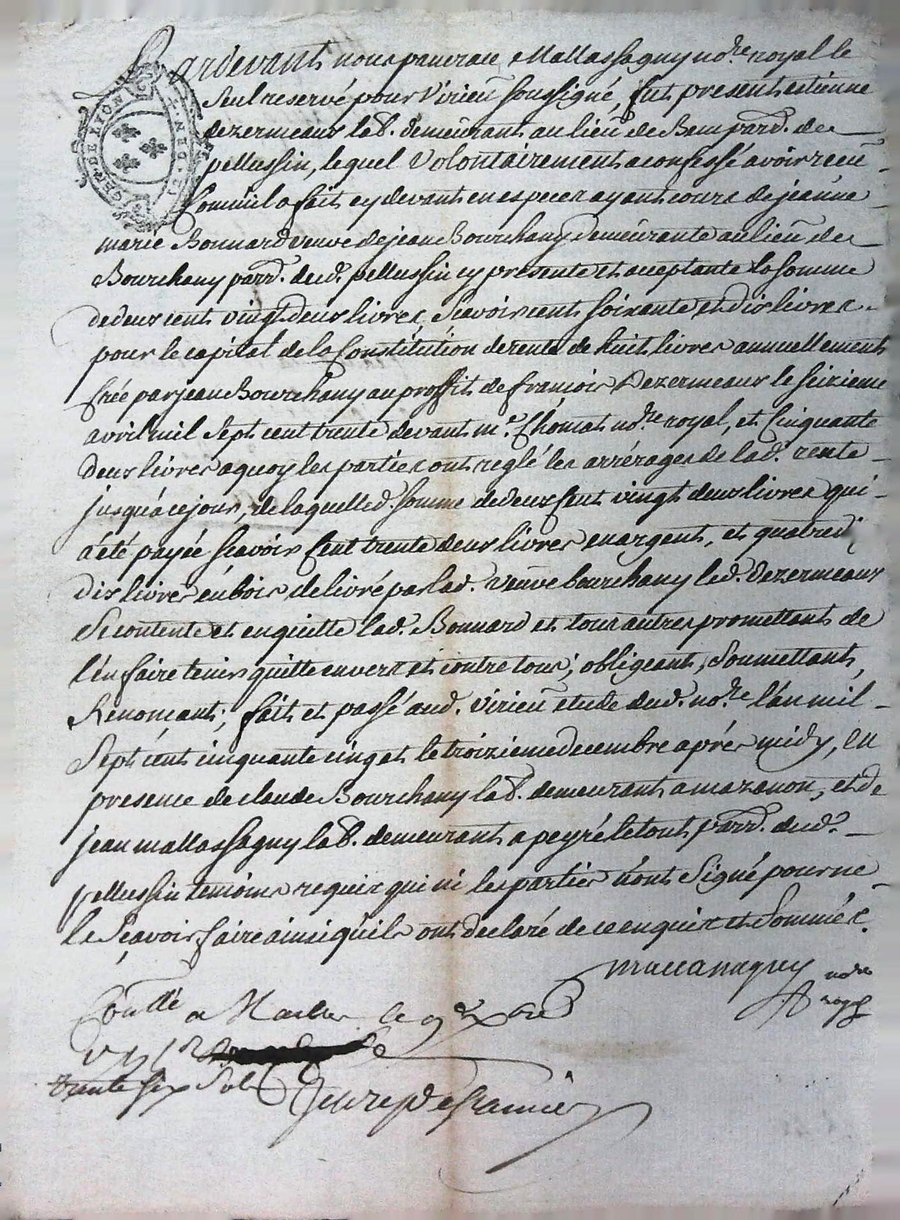 Pardevant nous pancrace Mallassagny no.re royal le
Seul reservé pour Virieu soussigné, fut present etienne
dezermeaux lab. demeurant au lieu de Bem par.d de
pellussin, lequel Volontairement a confessé avoir receu
Comm'il a fait cy devant en especes ayant cours de jeanne
marie Bonnard veuve de jean Bourchany demeurante au lieu de
Bourchany parr.d dud. pellussin cy presente et acceptante la somme
de deux cent vingt deux livres, Scavoir cent soixante et dix livres
pour le capital de la Constitution de rente de huit livres annuellement
Créé par jean Bourchany au proffit de francois Dezermeaux le seizieme
avril mil sept cent trente devant m.e Chomat no.re royal, et Cinquante
deux livres a quoy les parties ont reglé les arrérages de lad. rente
jusqu'a ce jour, de laquelle d. somme de deux Cent vingt deux livres qui
a été payée scavoir Cent trente deux livres en argent, et quatre
dix livres en bois delivré par lad. veuve bourchany led. dezermeaux
Se contente et en quitte lad. Bonnard et tous autres promettant de
l'en faire tenir quitte envers et contre tous; obligeant, Soumettant,
Renoncant; fait et passé aud. virieu etude dud. no.re l'an mil
Sept cent cinquante cinq et le troizieme decembre aprés midy, en
presence de claude Bourchany lab. demeurant a mazenon, et de
jean mallassagny lab. demeurant a peyré le tout parr.d dud.
pellussin temoins requis qui ni les parties n'ont Signé pour ne
le Scavoir faire ainsi qu'ils ont declaré de ce enquis et Sommés.
mallassagny no.re
roy.
Con.llé a le 9
trente six sols
GENER. DE LYON